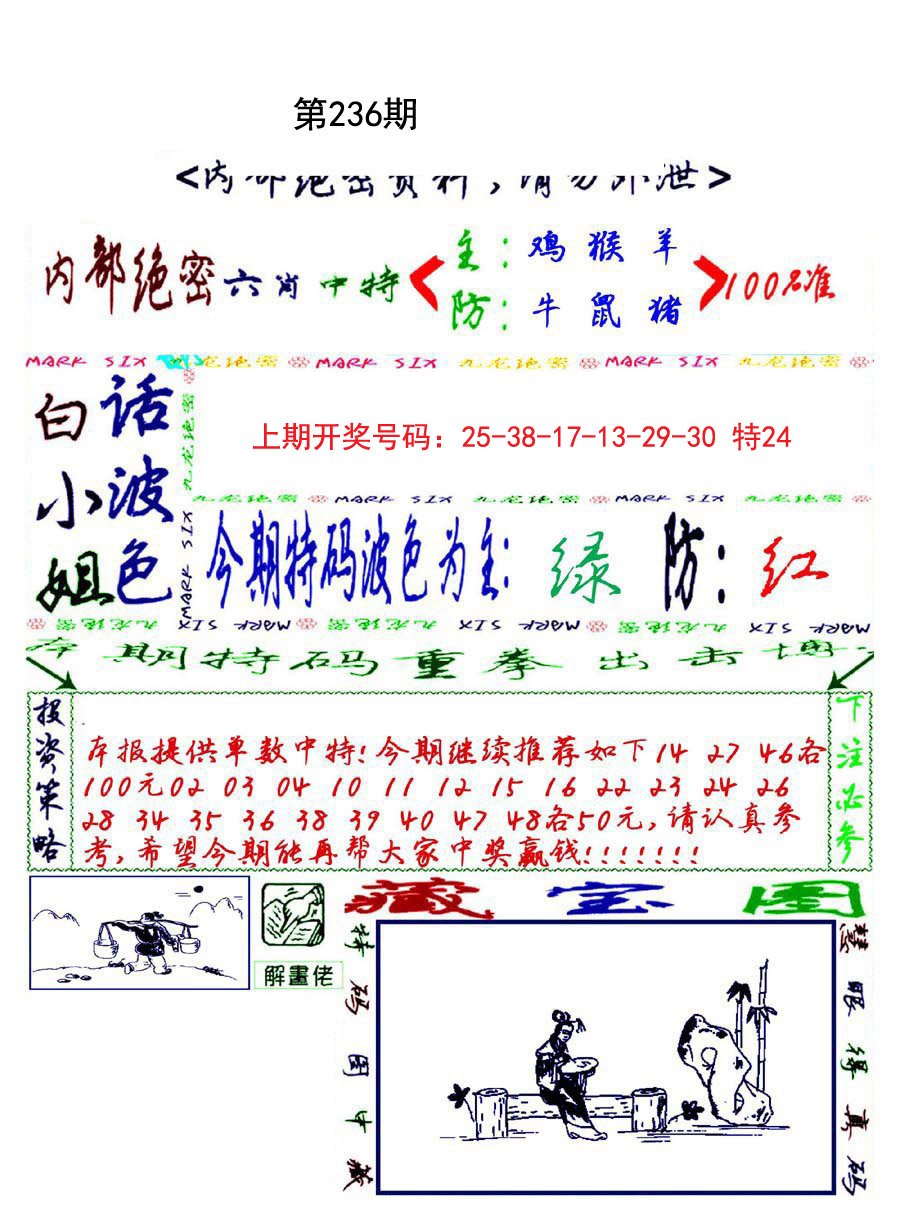 第236期
<内部绝密资料,请勿外泄>
内部绝密六肖中特
主:鸡 猴 羊
防:牛 鼠 猪
100%准
MARK SIX 九龙绝密 MARK SIX 九龙绝密 MARK SIX 九龙绝密
白话
小波
姐色
九龙绝密
MARK SIX
上期开奖号码：25-38-17-13-29-30 特24
九龙绝密 MARK SIX 九龙绝密 MARK SIX 九龙绝密
今期特码波色为主:绿 防:红
九龙绝密 MARK SIX 九龙绝密 MARK SIX 九龙绝密 MARK SIX
本期特码重拳出击博
投资策略
本报提供单数中特!今期继续推荐如下14 27 46各
100元02 03 04 10 11 12 15 16 22 23 24 26
28 34 35 36 38 39 40 47 48各50元,请认真参
考,希望今期能再帮大家中奖赢钱!!!!!!!
下注必参
解畫佬
藏宝图
特码图中藏
慧眼得真码